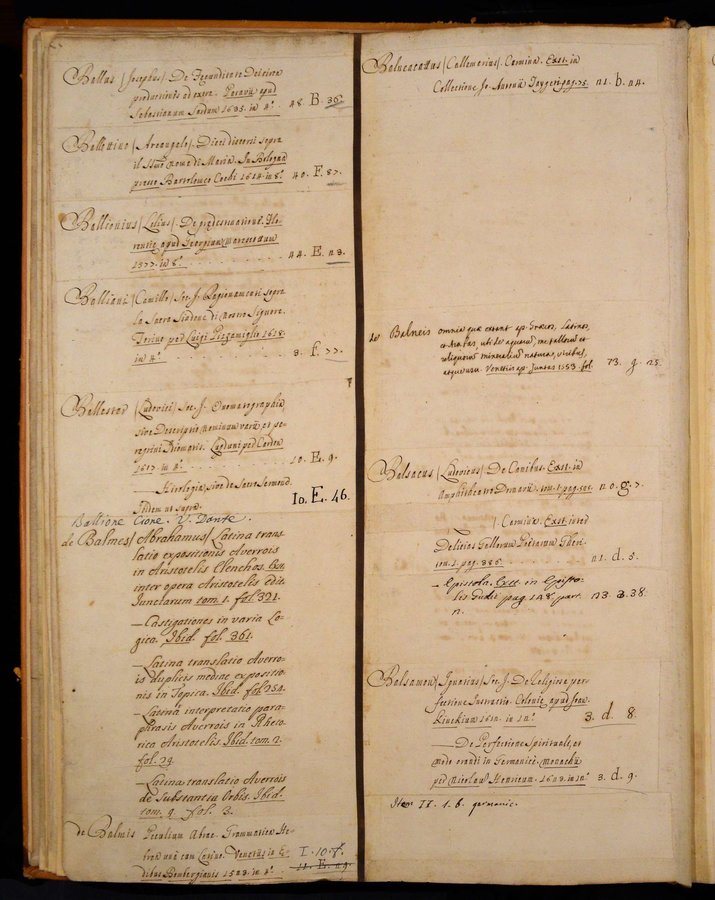 Ballus (Josephus) De Fecunditate Dei circa
productiones ad extra. Patavii apud
Sebastianum Sardum 1635. in 4°. 48. B. 36.
Ballettino (Arcangelo). Dieci discorsi sopra
il SSmo nome di Maria. In Bologna
presso Bartolomeo Cochi 1614. in 8°. 40. F. 87.
Ballionius (Lelius). De praedestinatione. Flo-
rentie apud Georgium Marescottum
1577. in 8°. 44. E. 23.
Balliani (Camillo) Ragionamenti sopra
la Sacra Sindone di Nostro Signore.
Torino per Luigi Pizzamiglio 1618.
in 4°. 3. f. 77.
Ballester (Ludovici) Soc. J. Onomatographia,
sive Descriptio nominum varii et pe-
regrini Idiomatis. Lugduni per Cardon
1617. in 4°. 10. E. 9.
— Hierologia, sive de Sacro Sermone.
Ibidem ut supra. 10. E. 46.
Ballione Cione. V. Dante.
de Balmes (Abrahamus) Latina trans
latio expositionis Averrois
in Aristotelis Elenchos. Ext.
inter opera Aristotelis edit.
Iunctarum tom. 1. fol. 321.
— Castigationes in varia Lo-
gica. Ibid. fol. 361.
— Latina translatio Averro-
is duplicis mediae expositio
nis in Topica. Ibid. fol. 254.
— Latina interpretatio para-
phrasis Averrois in Rheto-
rica Aristotelis Ibid. tom. 2.
fol. 29.
— Latina translatio Averrois
de Substantia Orbis. Ibid.
tom. 9. fol. 3.
de Balmis Peculium Abrae. Grammatica He-
braea una cum Latino. Venetiis in Ae- I. 10. f.
dibus Bombergianis 1523. in 4°. 11. E. 29.
Balneacattus (Callemerius) Carmina. Ext. in
Collectione Jo. Aurelii pag. 75. 21. b. 24.
de Balneis omnia quae extant ap. Graecos, Latinos,
et Arabas, ubi de aquarum, metallorum et
reliquorum mineralium naturas, viribus,
atque usu. Venetiis ap. Juntas 1553. fol. 73. g. 25.
Balsacus (Ludovicus) De Canibus. Ext. in
Amphitheatro Dornavii. tom. 1. pag. 501. 20. g. 7.
— (Carmina. Ext. inter
Delicias Gallorum Poetarum Gheri.
tom. 1. pag. 386. 21. d. 5.
— Epistola. Ext. in Episto-
lis Gudii pag. 148. part. 23. 3. 38.
2.
Balsamon (Ignatius) Soc. J. De Religiosae per-
fectione Instructio. Coloniae apud Joan.
Kinckium 1612. in 12°. 3. d. 8.
— De Perfectione Spirituali, et
modo orandi in Germanici. Monachii
per Nicolaum Henricum. 1623. in 12° 3. d. 9.
Item II. 1. b. germanic.